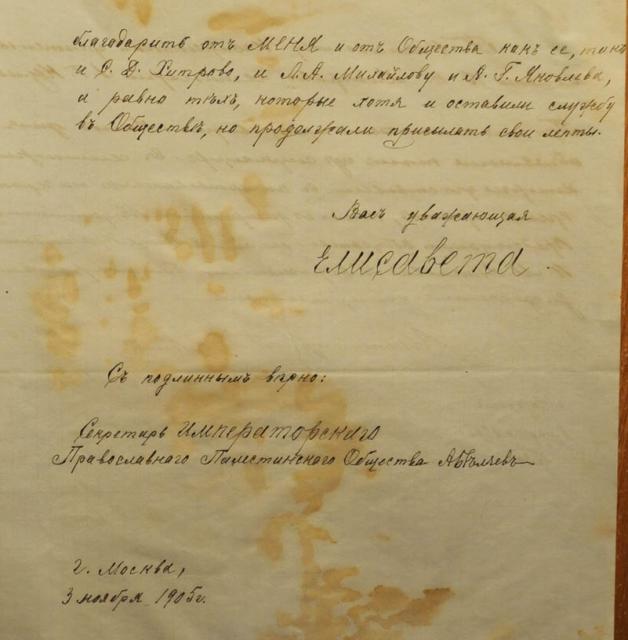 благодарить отъ МЕНЯ и отъ Общества какъ ее, такъ
и С. Д. Хитрово, и Л. А. Михайлову и А. Г. Яковлева,
а равно тѣхъ, которые хотя и оставили службу
въ Обществѣ, но продолжали присылать свои лепты.
Васъ уважающая
Елисавета.
Съ подлиннымъ вѣрно:
Секретарь Императорского
Православнаго Палестинскаго Общества
г. Москва,
3 ноября 1905 г.